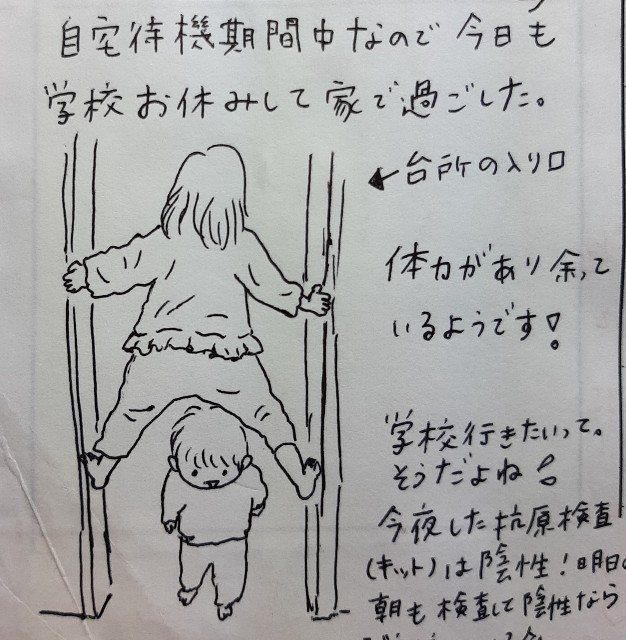 自宅待機期間中なので今日も
学校お休みして家で過ごした。
←台所の入り口
体力があり余って
いるようです!
学校行きたいって。
そうだよね!
今夜した抗原検査
(キット)は陰性!明日の
朝も検査して陰性なら